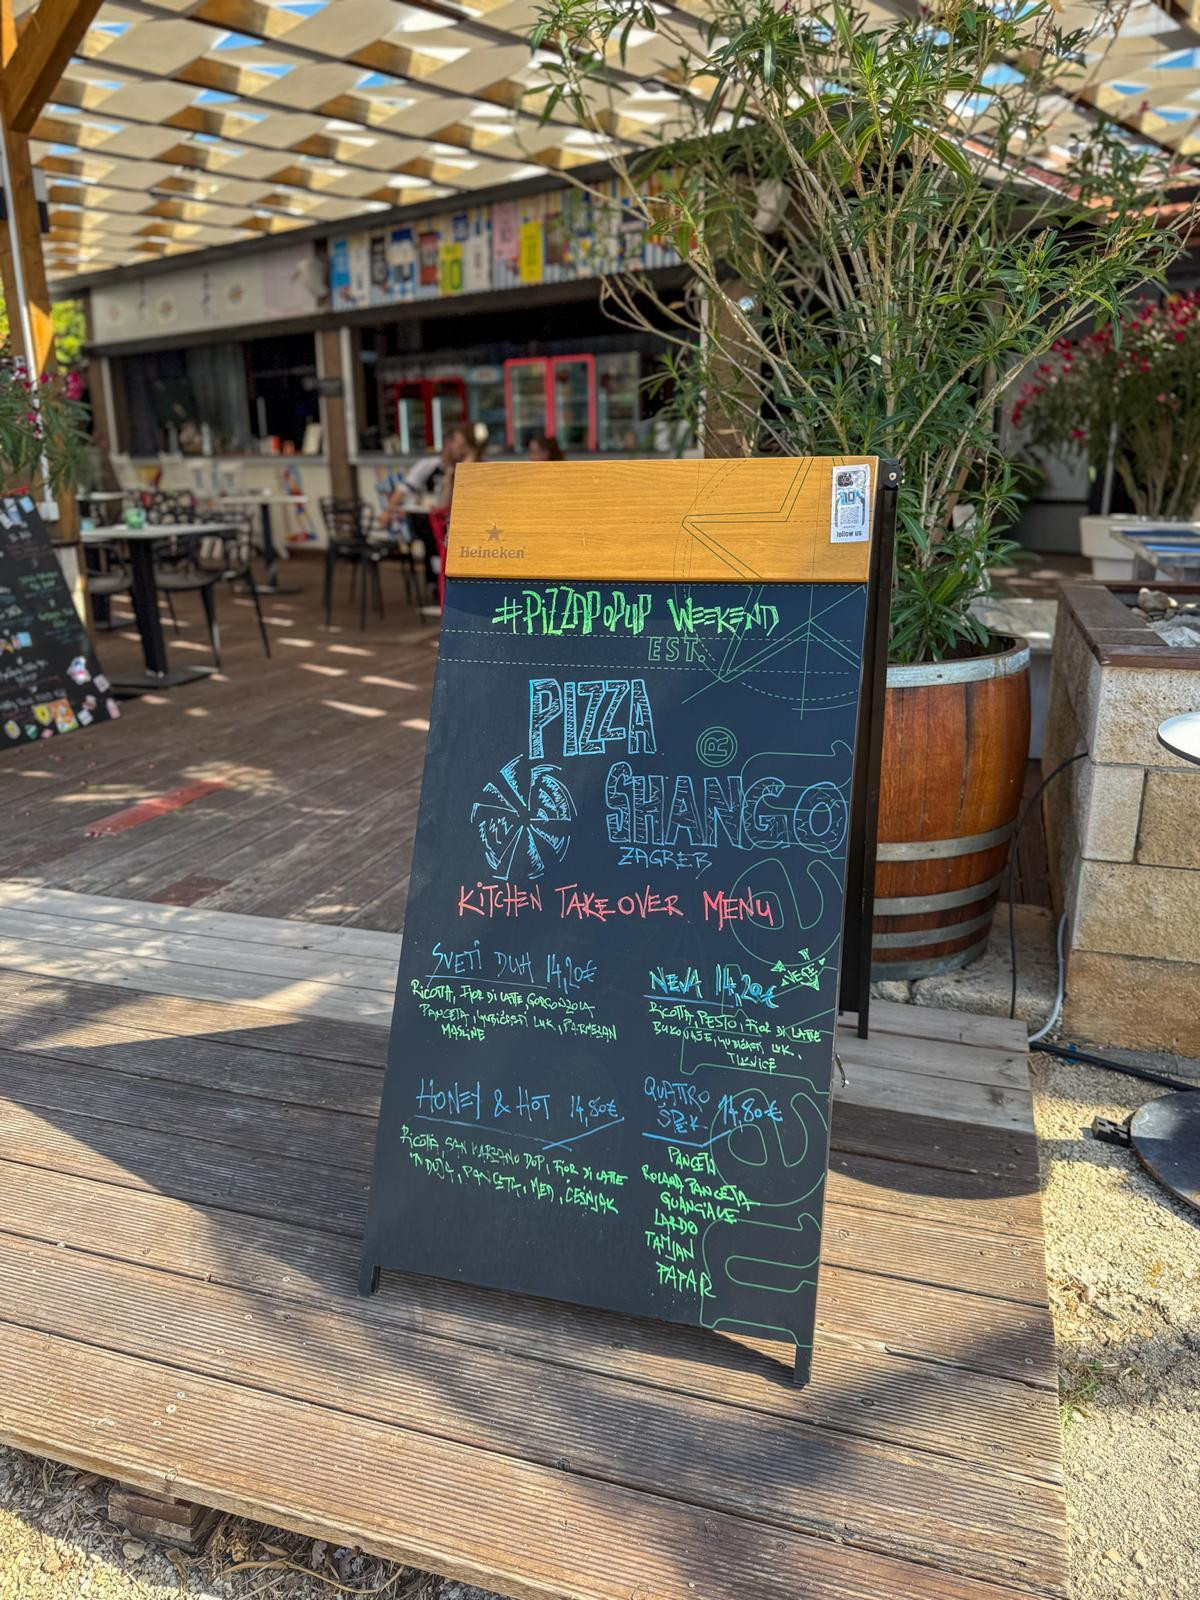 Heineken
follow us
#PIZZAPOPUP WEEKEND
EST.
PIZZA
SHANGO
ZAGREB
KITCHEN TAKEOVER MENU
SVETI DUH 14,20€
RICOTTA, FIOR DI LATTE, GORGONZOLA
PANCETA, LJUBIČASTI LUK, PARMEZAN
MASLINE
NEVA 14,20€
VEGE
RICOTTA, PESTO, FIOR DI LATTE
BUKOVAČE, LJUBIČASTI LUK,
TIKVICE
HONEY & HOT 14,80€
RICOTTA, SAN MARZANO DOP, FIOR DI LATTE
'NDUJA, PANCETA, MED, ČEŠNJAK
QUATTRO
ŠPEK 14,80€
PANCETA
ROLANA PANCETA
GUANCIALE
LARDO
TAMJAN
PAPAR